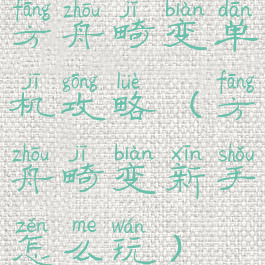 fāng zhōu jī biàn dān
方舟畸变单
jī gōng lüè fāng
机攻略（方
zhōu jī biàn xīn shǒu
舟畸变新手
zěn me wán
怎么玩）